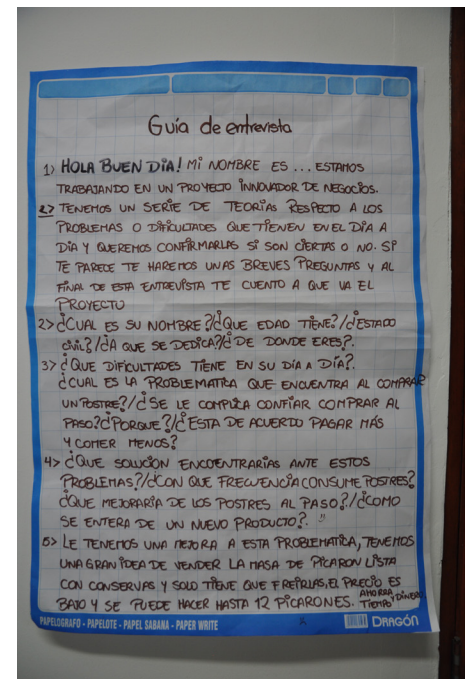 Guía de entrevista
1> HOLA BUEN DÍA! MI NOMBRE ES ... ESTAMOS
TRABAJANDO EN UN PROYECTO INNOVADOR DE NEGOCIOS.
2> TENEMOS UN SERIE DE TEORÍAS RESPECTO A LOS
PROBLEMAS O DIFICULTADES QUE TIENEN EN EL DÍA A
DÍA Y QUEREMOS CONFIRMARLAS SI SON CIERTAS O NO. SI
TE PARECE TE HAREMOS UNAS BREVES PREGUNTAS Y AL
FINAL DE ESTA ENTREVISTA TE CUENTO A QUE VA EL
PROYECTO
2> ¿CUAL ES SU NOMBRE?/¿QUE EDAD TIENE?/¿ESTADO
CIVIL?/¿A QUE SE DEDICA?/¿DE DONDE ERES?.
3> ¿QUE DIFICULTADES TIENE EN SU DÍA A DÍA?.
¿CUAL ES LA PROBLEMATICA QUE ENCUENTRA AL COMPRAR
UN POSTRE?/¿SE LE COMPLICA CONFIAR COMPRAR AL
PASO?¿PORQUE?/¿ESTA DE ACUERDO PAGAR MÁS
Y COMER MENOS?
4> ¿QUE SOLUCIÓN ENCONTRARÍAS ANTE ESTOS
PROBLEMAS?/¿CON QUE FRECUENCIA CONSUME POSTRES?
¿QUE MEJORARÍA DE LOS POSTRES AL PASO?/¿COMO
SE ENTERA DE UN NUEVO PRODUCTO?.
5> LE TENEMOS UNA MEJORA A ESTA PROBLEMATICA, TENEMOS
UNA GRAN IDEA DE VENDER LA MASA DE PICARON LISTA
CON CONSERVAS Y SOLO TIENE QUE FREIRLAS, EL PRECIO ES
BAJO Y SE PUEDE HACER HASTA 12 PICARONES. AHORRA
TIEMPO Y DINERO
PAPELOGRAFO - PAPELOTE - PAPEL SABANA - PAPER WRITE DRAGÓN